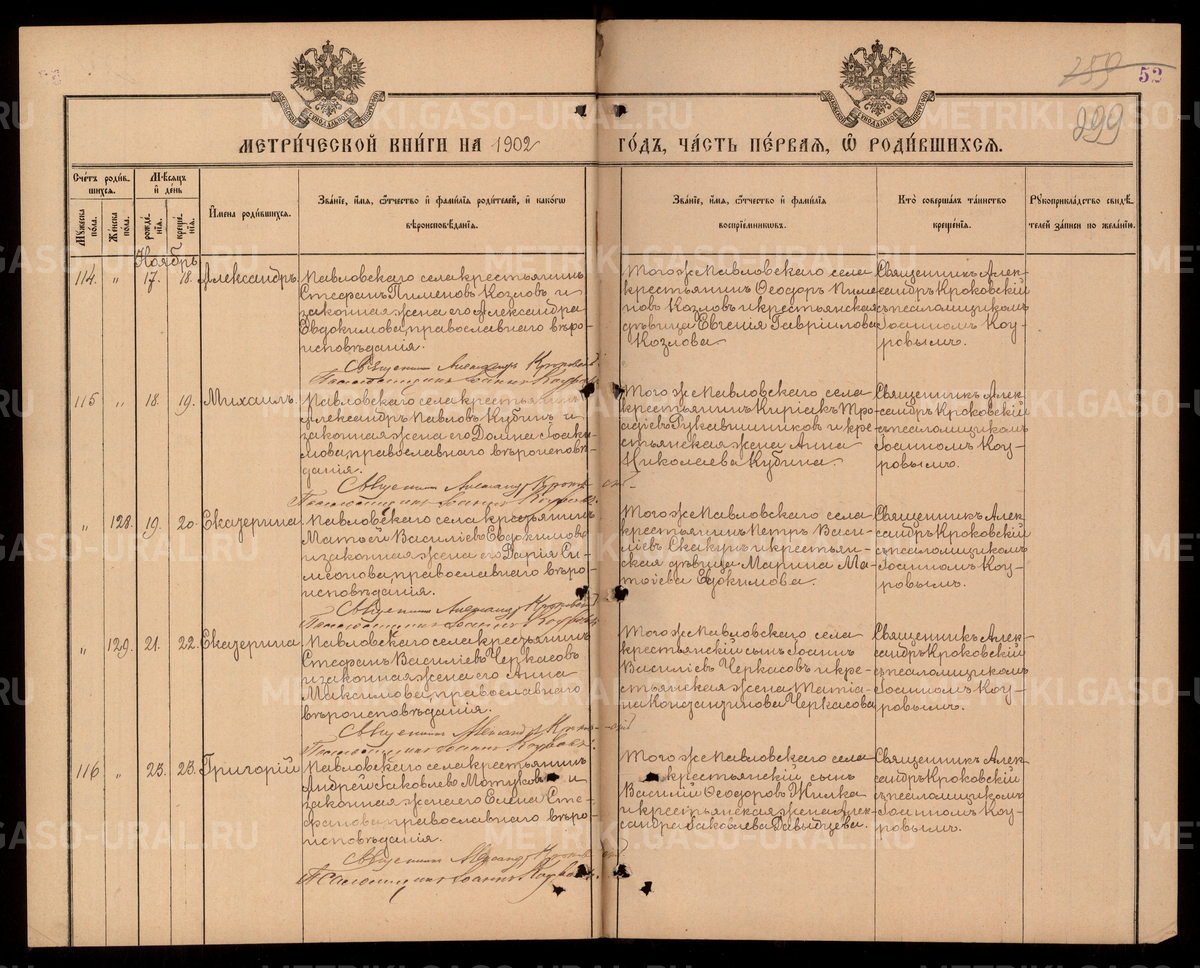 259
52
299
МЕТРИ́ЧЕСКОЙ КНИ́ГИ НА 1902
ГО́ДЪ, ЧА́СТЬ ПЕ́РВАЯ, Ѿ РОДИ́ВШИХСЯ.
Сче́тъ роди́в
шихся.
Мѣ́сяцъ
и҆ де́нь
Мꙋ́жеска
по́ла.
Же́нска
по́ла.
рожде́
нїя.
креще́
нїя.
И҆мена̀ роди́вшихся.
Зва́нїе, и҆́мя, ѻ҆́тчество и҆ фами́лїя роди́телей, и҆ како́гѡ
вѣроисповѣ́данїя.
Зва́нїе, и҆́мя, ѻ҆́тчество и҆ фами́лїя
воспрїе́мникѡвъ.
Кто̀ соверша́лъ та́инство
креще́нїя.
Рꙋкоприкла́дство свидѣ́
телей за́писи по жела́нїю.
Ноябрь
114. " 17. 18. Александръ
Павловскаго села крестьянинъ
Стефанъ Пименовъ Козловъ и
законная жена его Александра
Евдокимова, православнаго вѣро-
исповѣданія.
Священникъ Александръ Кроковскій
Псаломщикъ Іоаннъ Коуровъ.
Того же Павловскаго села
крестьянинъ Ѳеодоръ Пиме
новъ Козловъ и крестьянская
дѣвица Евгенія Гавріилова
Козлова
Священникъ Алек-
сандръ Кроковскій
съ псаломщикомъ
Іоанномъ Коу-
ровымъ.
115 " 18 19. Михаилъ.
Павловскаго села крестьянинъ
Александръ Павловъ Кубинъ и
законная жена его Домна Іоаки-
мова, православнаго вѣроисповѣ-
данія.
Священникъ Александръ Кроковскій
Псаломщикъ Іоаннъ Коуровъ.
Того же Павловскаго села
крестьянинъ Киріакъ
Рукавишниковъ и кре
стьянская жена Анна
Николаева Кубина.
Священникъ Алек-
сандръ Кроковскій
съ псаломщикомъ
Іоанномъ Коу-
ровымъ.
" 128. 19. 20. Екатерина.
Павловскаго села крестьянинъ
Матѳей Василіевъ Евдокимовъ
и законная жена его Дарія Си-
меонова, православнаго вѣро-
исповѣданія.
Священникъ Александръ Кроковскій
Псаломщикъ Іоаннъ Коуровъ
Того же Павловскаго села
крестьянинъ Петръ Васи-
ліевъ Скакунъ и крестьян-
ская дѣвица Марина Ма-
тѳіева Евдокимова.
Священникъ Алек-
сандръ Кроковскій
съ псаломщикомъ
Іоанномъ Коу-
ровымъ.
" 129. 21. 22. Екатерина.
Павловскаго села крестьянинъ
Стефанъ Василіевъ Черкасовъ
и законная жена его Анна
Максимова, православнаго
вѣроисповѣданія.
Священникъ Александръ Кроковскій
Псаломщикъ Іоаннъ Коуровъ.
Того же Павловскаго села
крестьянскій сынъ Іоаннъ
Василіевъ Черкасовъ и кре-
стьянская жена Татіа-
на Константинова Черкасова
Священникъ Алек-
сандръ Кроковскій
съ псаломщикомъ
Іоанномъ Коу-
ровымъ.
116 " 23. 23. Григорій
Павловскаго села крестьянинъ
Андрей Іаковлевъ и
законная жена его Елена Сте-
фанова, православнаго вѣро-
исповѣданія.
Священникъ Александръ Кроковскій
Псаломщикъ Іоаннъ Коуровъ.
Того же Павловскаго села
крестьянскій сынъ
Василій Ѳеодоровъ Жилка
и крестьянская жена Алек-
сандра Іаковлева Давыдцева.
Священникъ Алек
сандръ Кроковскій
съ псаломщикомъ
Іоанномъ Коу-
ровымъ.
METRIKI.GASO-URAL.RU